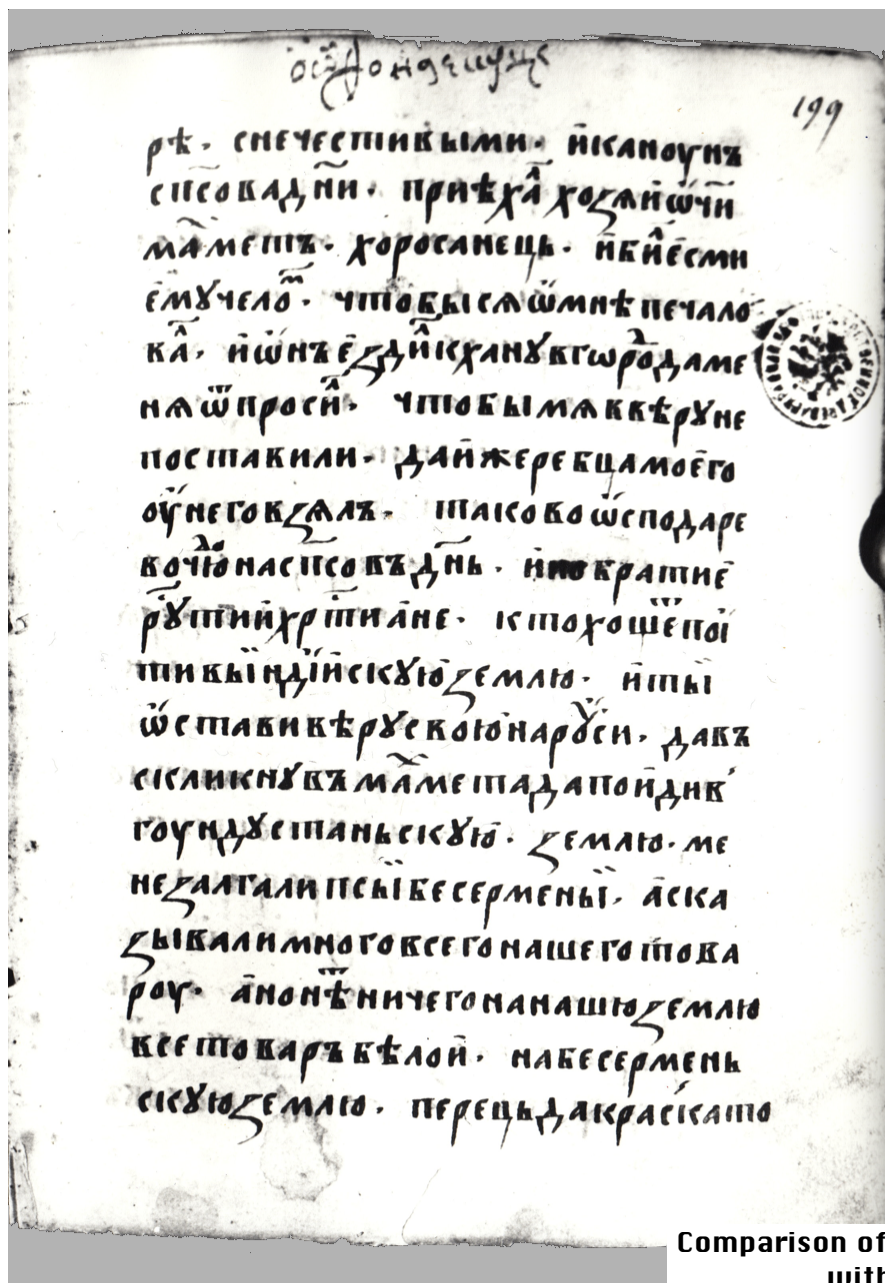 199
рѣ. снечестивыми. ї каноунъ
сп҃сова дн҃и. приѣхаⷧ хозѧ и҆ѡчи
маⷨметъ. хоросанець. и҆ биⷧ е҆сми
е҆мꙋ челоⷨ. чтобы сѧ ѡ҆ мнѣ печало
ваⷧ. и҆ ѡ҆нъ е҆здиⷧ к ханꙋ в гѡроⷣ да ме
нѧ ѿпросиⷧ. чтобы мѧ в вѣрꙋ не
поставили. да и҆ жеребца моего
оу҆ него взѧлъ. таково ѡ҆сподаре
во чюⷣо на сп҃совъ дн҃ь. и҆но братие
рꙋ҃стии хрⷭ҇тиане. кто хощеⷮ пои
ти в ындїискую землю. и҆ ты
ѡ҆стави вѣрꙋ свою на рꙋси. давъ
скликнꙋвъ маⷨмета да пойди в
гоундꙋстаньскꙋю. землю. ме
не залгали псы бесермены. а҆ ска
зывали много всего нашего това
роу. а҆но нѣⷮ ничего на нашю землю
все товаръ бѣлой. на бесермень
скꙋю землю. перець да краска то
Comparison of
with